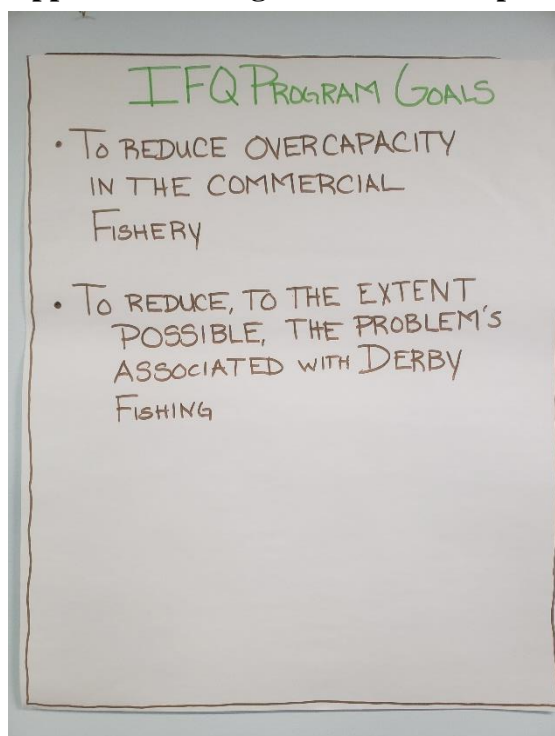 IFQ PROGRAM GOALS
• TO REDUCE OVERCAPACITY
IN THE COMMERCIAL
FISHERY
• TO REDUCE, TO THE EXTENT
POSSIBLE, THE PROBLEM'S
ASSOCIATED WITH DERBY
FISHING